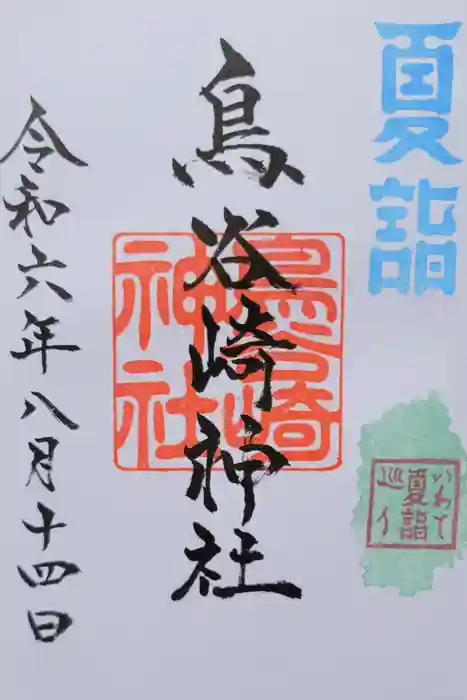 夏詣
いわて
夏詣
巡り
鳥谷崎神社
鳥谷崎
神社
令和六年八月十四日